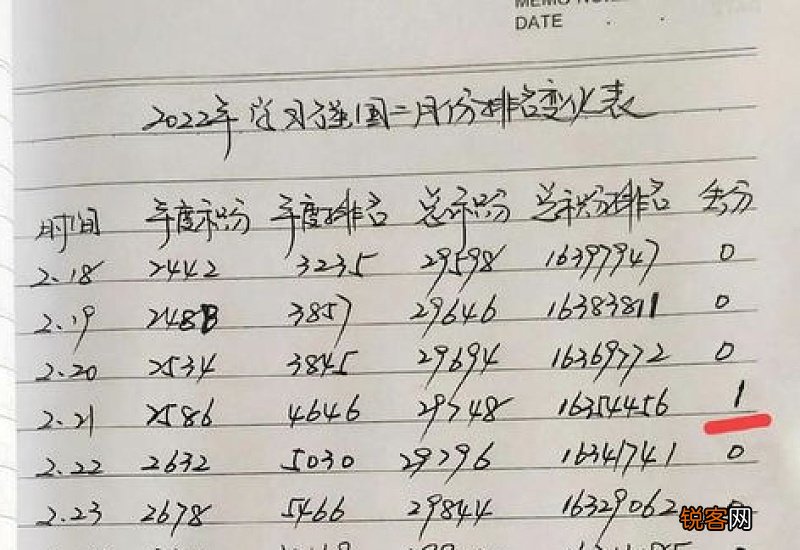 DATE
2022年学习强国二月份排名变化表
时间 年度积分 年度排名 总积分 总积分排名 丢分
2.18 2442 3235 29598 16397947 0
2.19 2488 3857 29646 16383811 0
2.20 2534 3845 29694 16369772 0
2.21 2586 4646 29748 16354456 1
2.22 2632 5030 29796 16341741 0
2.23 2678 5466 29844 16329062
锐客网